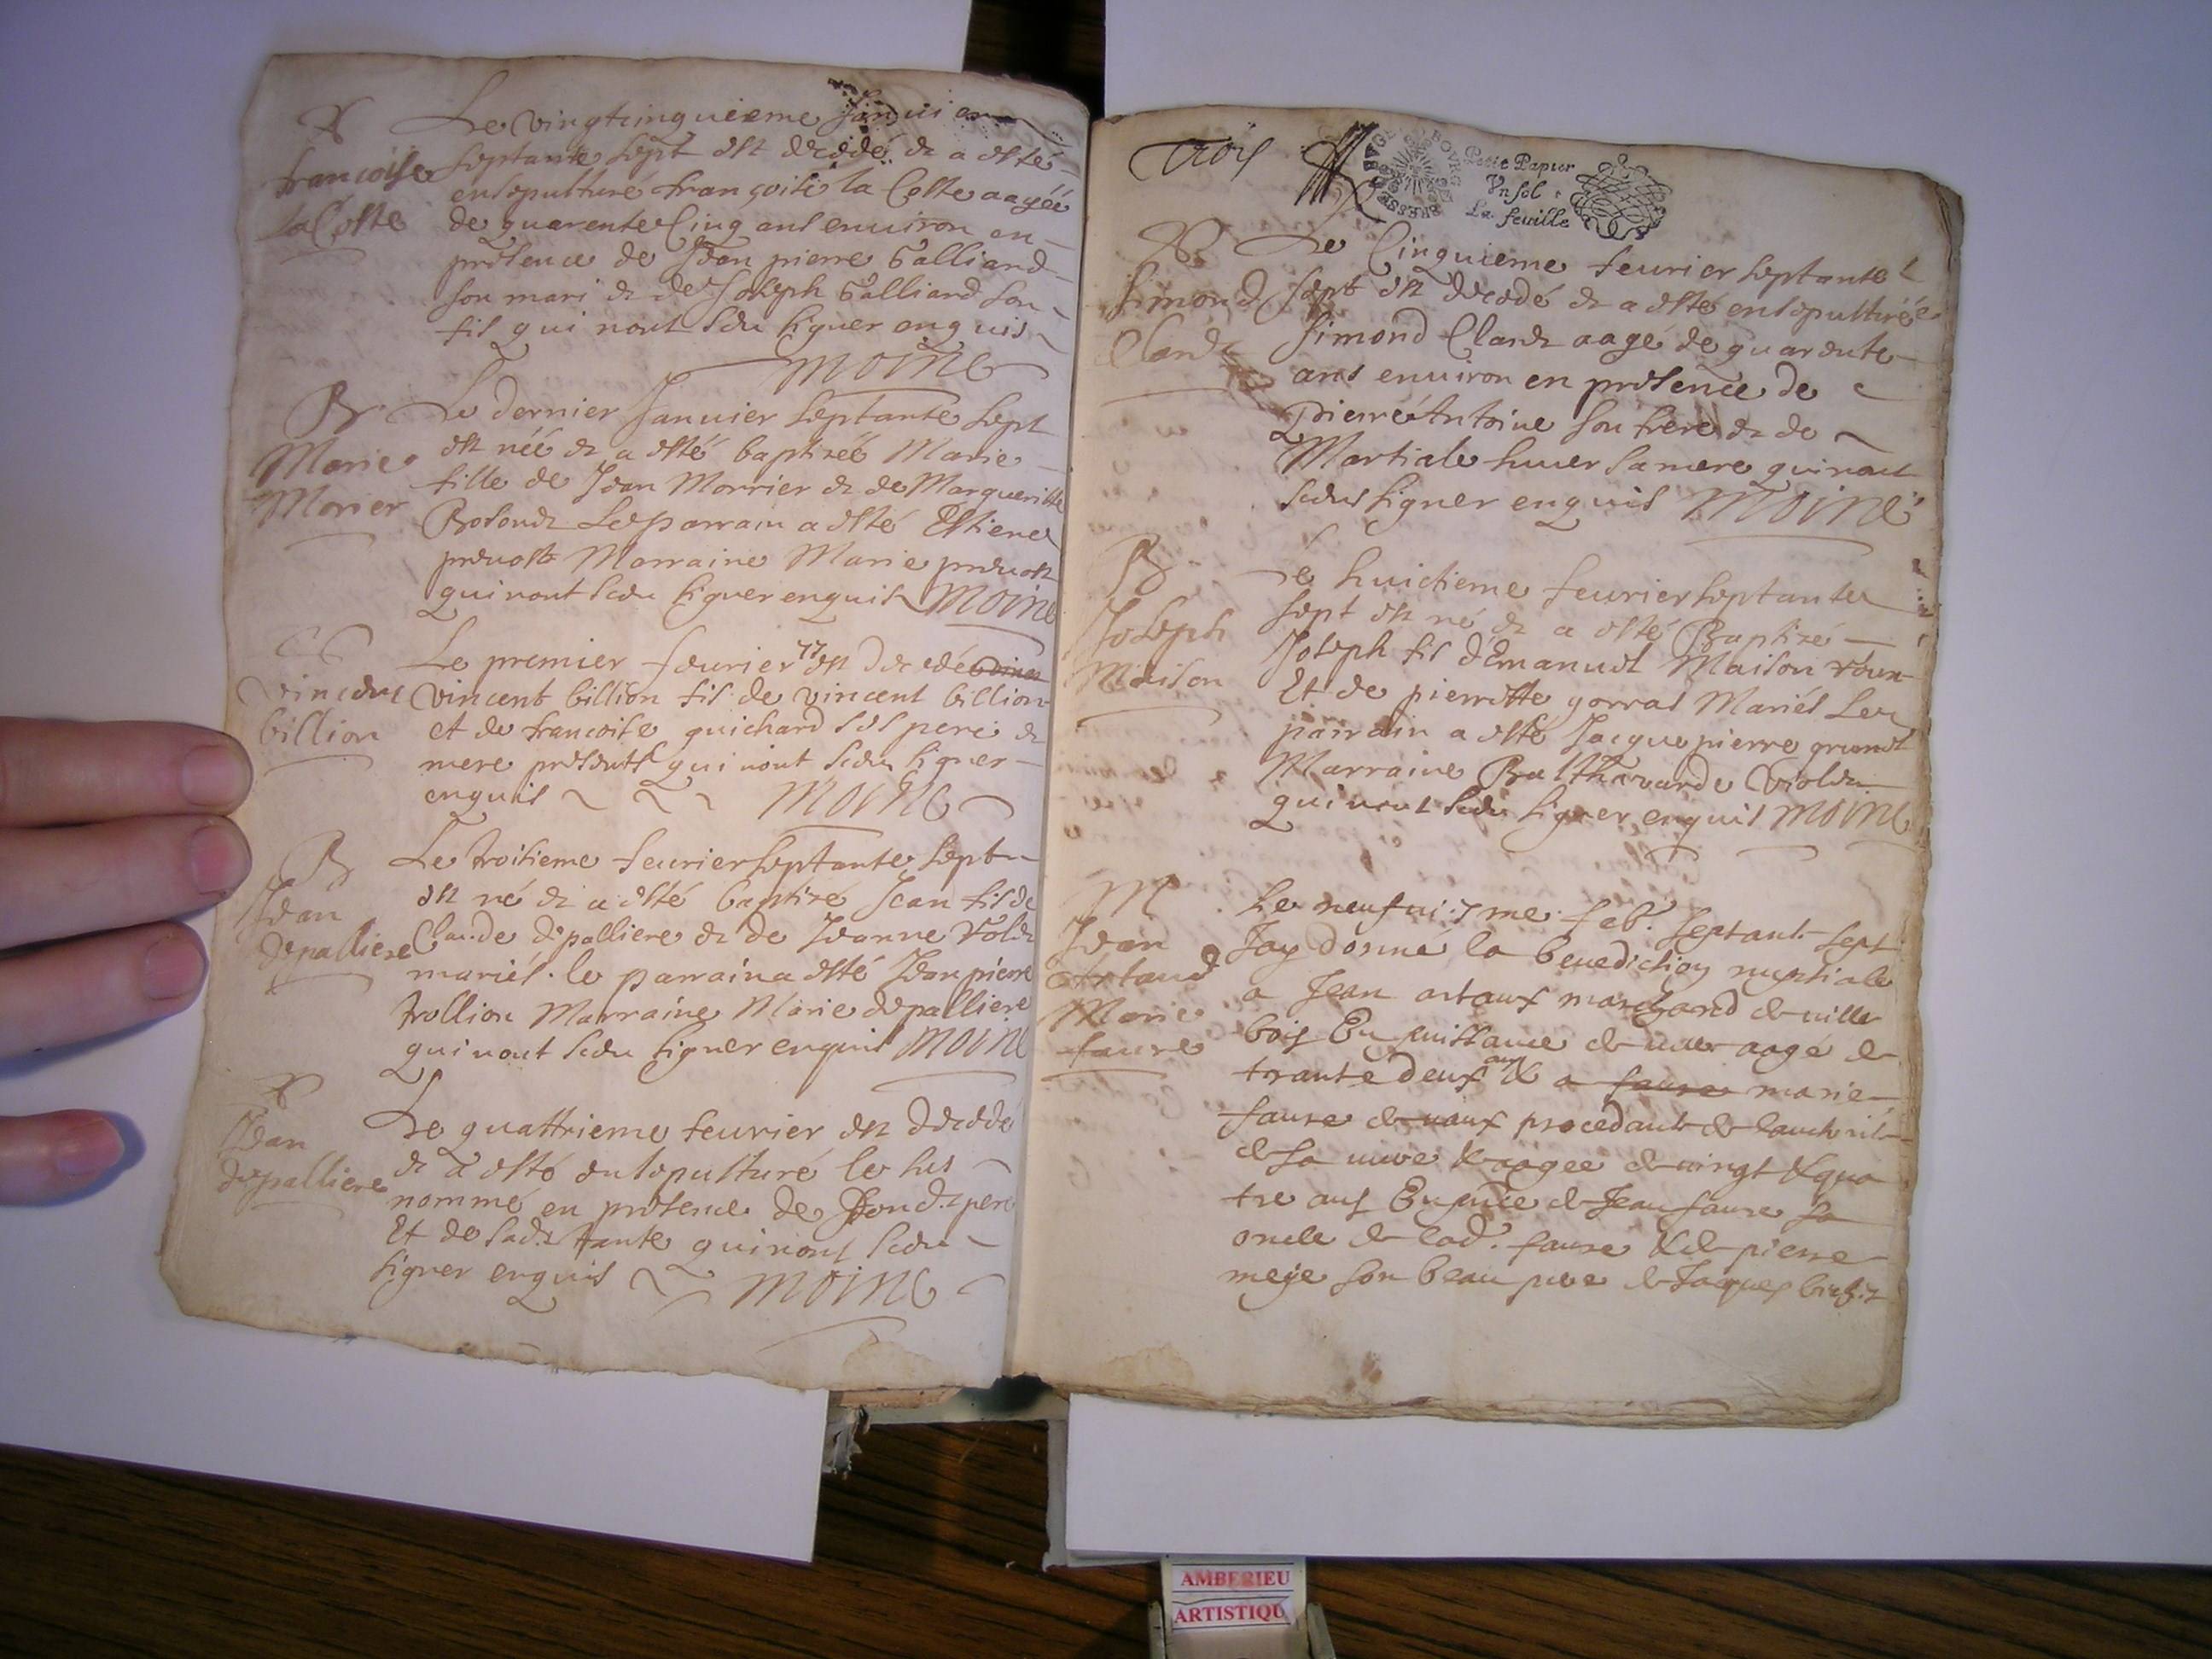 Le vingtcinquieme
francoise
septante sept est decedé & a esté
ensepulturé françoise la Coste aagéé
la Coste
de quarente Cinq ans environ en
presence de Jean pierre Galliand
son mari & de Joseph Galliand son
fils qui nont sceu signer enquis
MOINE
B
Le dernier Januier septante sept
Marie
est néé & a esté baptizéé Marie
fille de Jean Morrier & de Margueritte
Morier
Le parrain a esté Estiene
preuost Marraine Marie preuost
qui nont sceu signer enquis MOINE
Le premier feurier 77 est decedé
vincent
vincent billion fils de vincent billion
billion
et de francoise guichard ses pere &
mere presents qui nont sceu signer
enquis MOINE
B
Le troisieme feurier septante sept
Jean
est né & a esté baptizé Jean fils de
depalliere
Claude depalliere & de Jeanne
mariés. le parrain a esté Jean pierre
trollion Marraine Marie depalliere
qui nont sceu signer enquis MOINE
Le quattrieme feurier est decedé
Jean
& a esté ensepulturé le sus
depalliere
nommé en presence de pere
Et de sad. tante qui nont sceu
signer enquis MOINE
trois
BOURG BRESSE
Petit Papier
Vn sol
La feuille
Le Cinquieme feurier septante
Simond
sept est decedé & a esté ensepulturéé
Simond Clande aagé de quarente
ans enuiron en presence de
Pierre Antoine son frere & de
Martiale sa mere qui nont
sceu signer enquis MOINE
B
Le huictieme feurier septante
Joseph
sept est né & a esté Baptizé
Maison
Joseph fils d'Emanuel Maison
Et de pierrette gorrat Mariés Le
parrain a esté Jacque pierre
Marraine Balthazarde
qui nont sceu signer enquis MOINE
M
Le neufuieme feb. septante sept
Jean
Jay donné la benediction nuptiale
Artaud
a Jean artaux marchand de ville
Marie
bois En puissance de aagé de
faure
trante deux ans & a faure marie
faure de procedante de lauthorité
de sa mere & aagee de vingt & qua
tre ans En pnce de Jean faure sa
oncle de lad. faure & de pierre
meye son beau pere & Jaques
AMBERIEU
ARTISTIQU